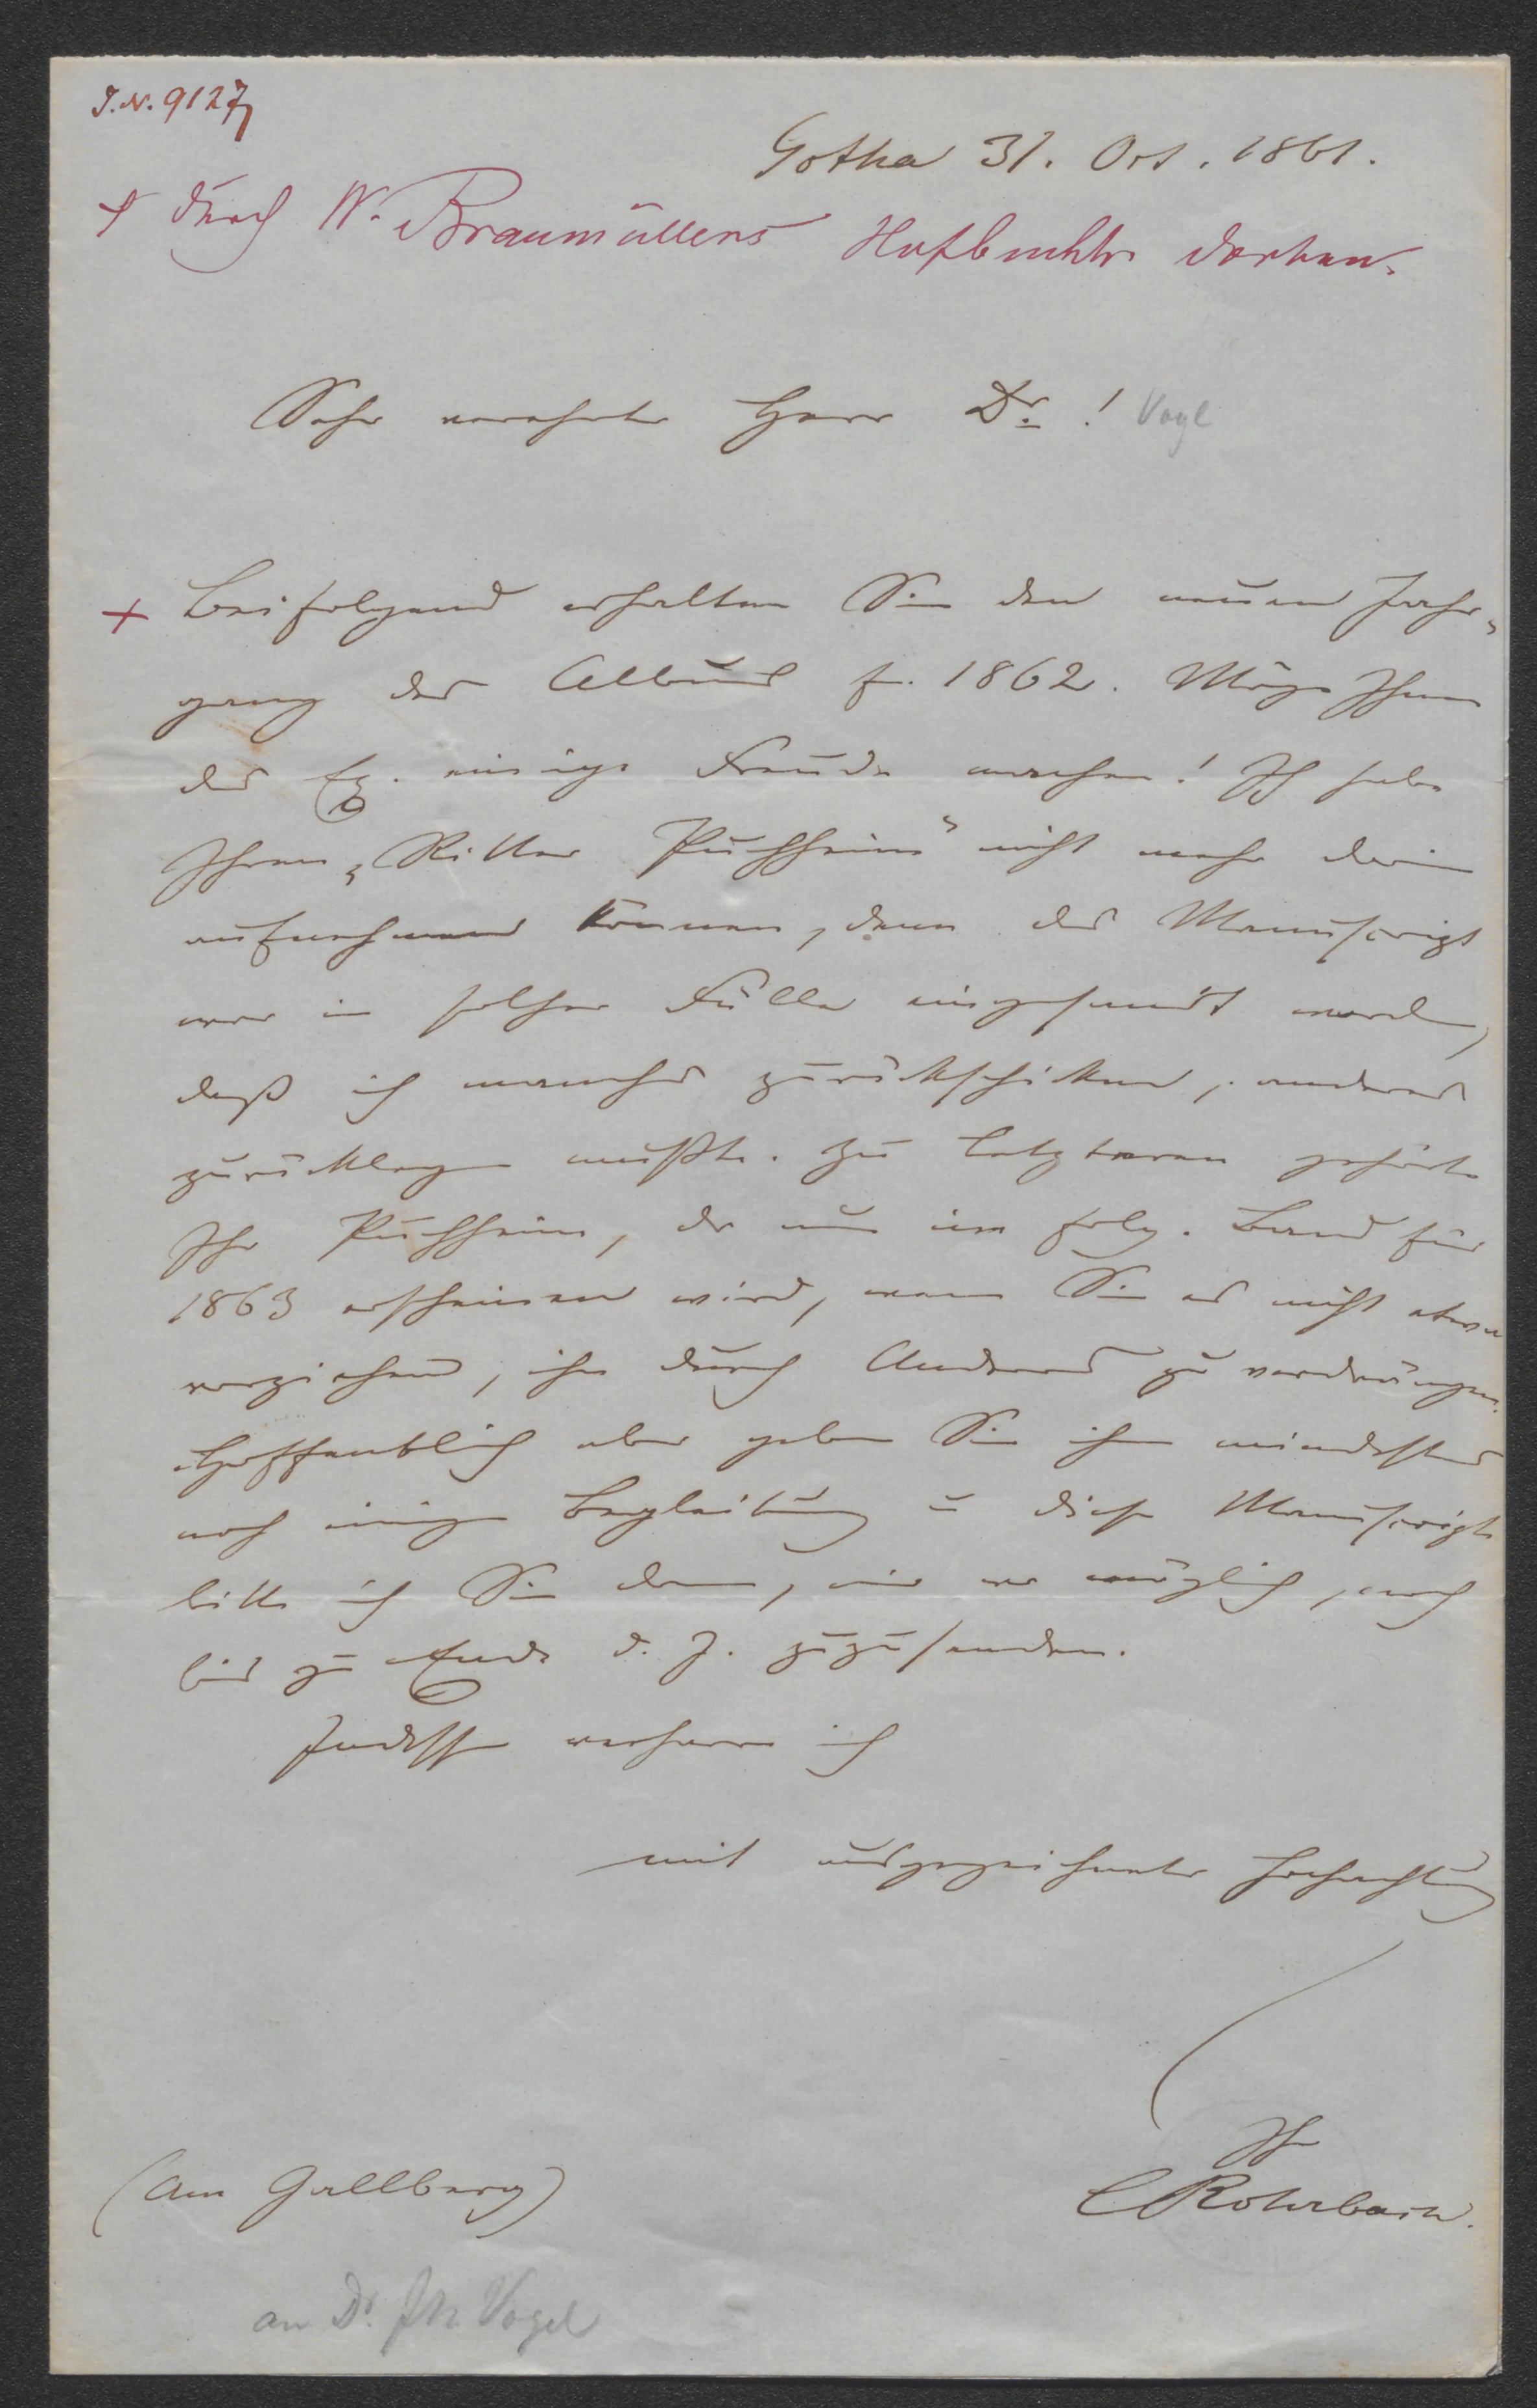 I.N. 9127
Gotha 31. Oct. 1861.
+ durch W. Braumüllers Hofbuchh. dorten.
Sehr verehrter Herr Dr.! Vogl
+ Beifolgend erhalten Sie den neuen Jahr-
gang des Albums f. 1862. Möge Ihnen
das Ex. einige Freude machen! Ich habe
Ihren „Ritter Puchheim" nicht mehr darin
aufnehmen können, denn das Manuscript
war in solcher Fülle eingesandt worden,
daß ich manches zurückschicken, anderes
zurücklegen mußte. Zu letzterem gehörte
Ihr Puchheim, der nun im folg. Band für
1863 erscheinen wird, wenn Sie es nicht etwa
vorziehen, ihn durch Anderes zu verdrängen.
Hoffentlich aber geben Sie ihm mindestens
noch einige Begleitung u diese Manuscripte
bitte ich Sie dann, mir wo möglich, noch
bis zu Ende d. J. zuzusenden.
Indessen verharre ich
mit ausgezeichneter Hochachtung
Ihr
C Rohrbach.
(Am Gallberg)
an Dr. J N Vogel